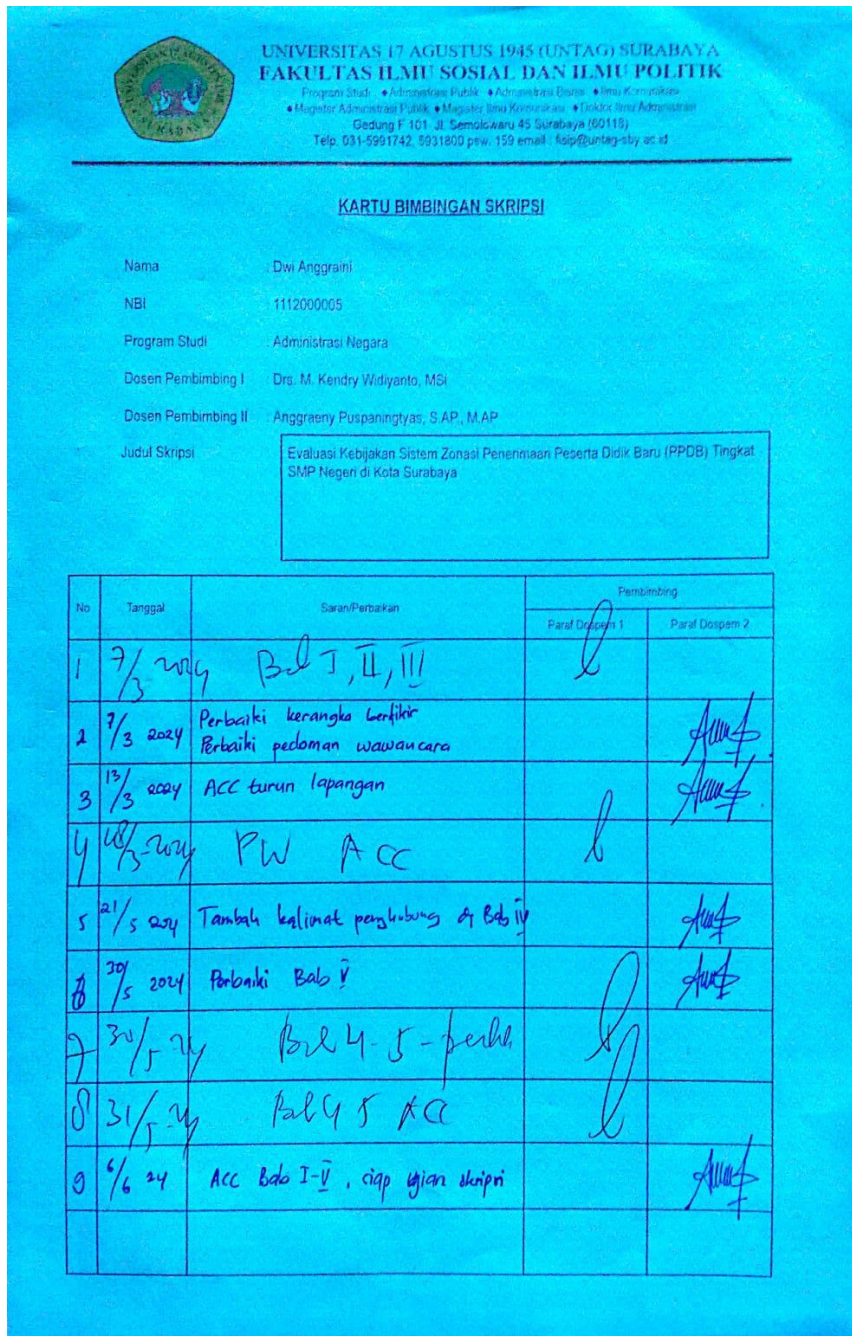 UNIVERSITAS 17 AGUSTUS 1945 (UNTAG) SURABAYA
FAKULTAS ILMU SOSIAL DAN ILMU POLITIK
Program Studi : ♦Administrasi Publik ♦Administrasi Bisnis ♦Ilmu Komunikasi
♦Magister Administrasi Publik ♦Magister Ilmu Komunikasi ♦Doktor Ilmu Administrasi
Gedung F 101 Jl. Semolowaru 45 Surabaya (60118)
Telp. 031-5991742, 5931800 psw. 159 email : fisip@untag-sby.ac.id
KARTU BIMBINGAN SKRIPSI
Nama : Dwi Anggraini
NBI : 1112000005
Program Studi : Administrasi Negara
Dosen Pembimbing I : Drs. M. Kendry Widiyanto, MSi
Dosen Pembimbing II : Anggraeny Puspaningtyas, S.AP., M.AP
Judul Skripsi
Evaluasi Kebijakan Sistem Zonasi Penerimaan Peserta Didik Baru (PPDB) Tingkat
SMP Negeri di Kota Surabaya
No Tanggal Saran/Perbaikan Pembimbing
Paraf Dospem 1 Paraf Dospem 2
1 7/3 2024 Bab I, II, III
2 7/3 2024 Perbaiki kerangka berfikir
Perbaiki pedoman wawancara
3 13/3 2024 ACC turun lapangan
4 /3-2024 PW ACC
5 21/5 2024 Tambah kalimat penghubung di Bab IV
6 30/5 2024 Perbaiki Bab V
7 30/5-24 Bab 4-5-
8 31/5-24 Bab 4 5 ACC
9 6/6 24 ACC Bab I-V, siap ujian skripsi